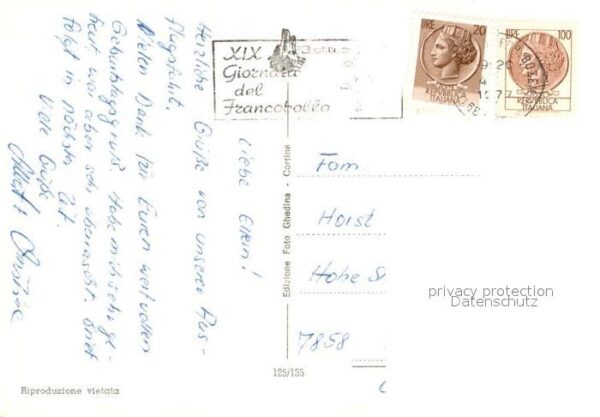 Liebe Eltern!
Herzliche Grüße von unserem Aus-
flugsfahrt.
Vielen Dank für Euren wertvollen
Geburtstagsgruß. Habe mich sehr ge-
freut, war aber sehr überrascht. Brief
folgt in nächster Zeit.
Viele Grüße
XIX
Giornata
del
Francobollo
LIRE 20
REPVBBLICA
ITALIANA
LIRE 100
REPVBBLICA
ITALIANA
1977
Fam.
Horst
Hohe
7858
Edizione Foto Ghedina - Cortina
125/135
Riproduzione vietata
privacy protection
Datenschutz